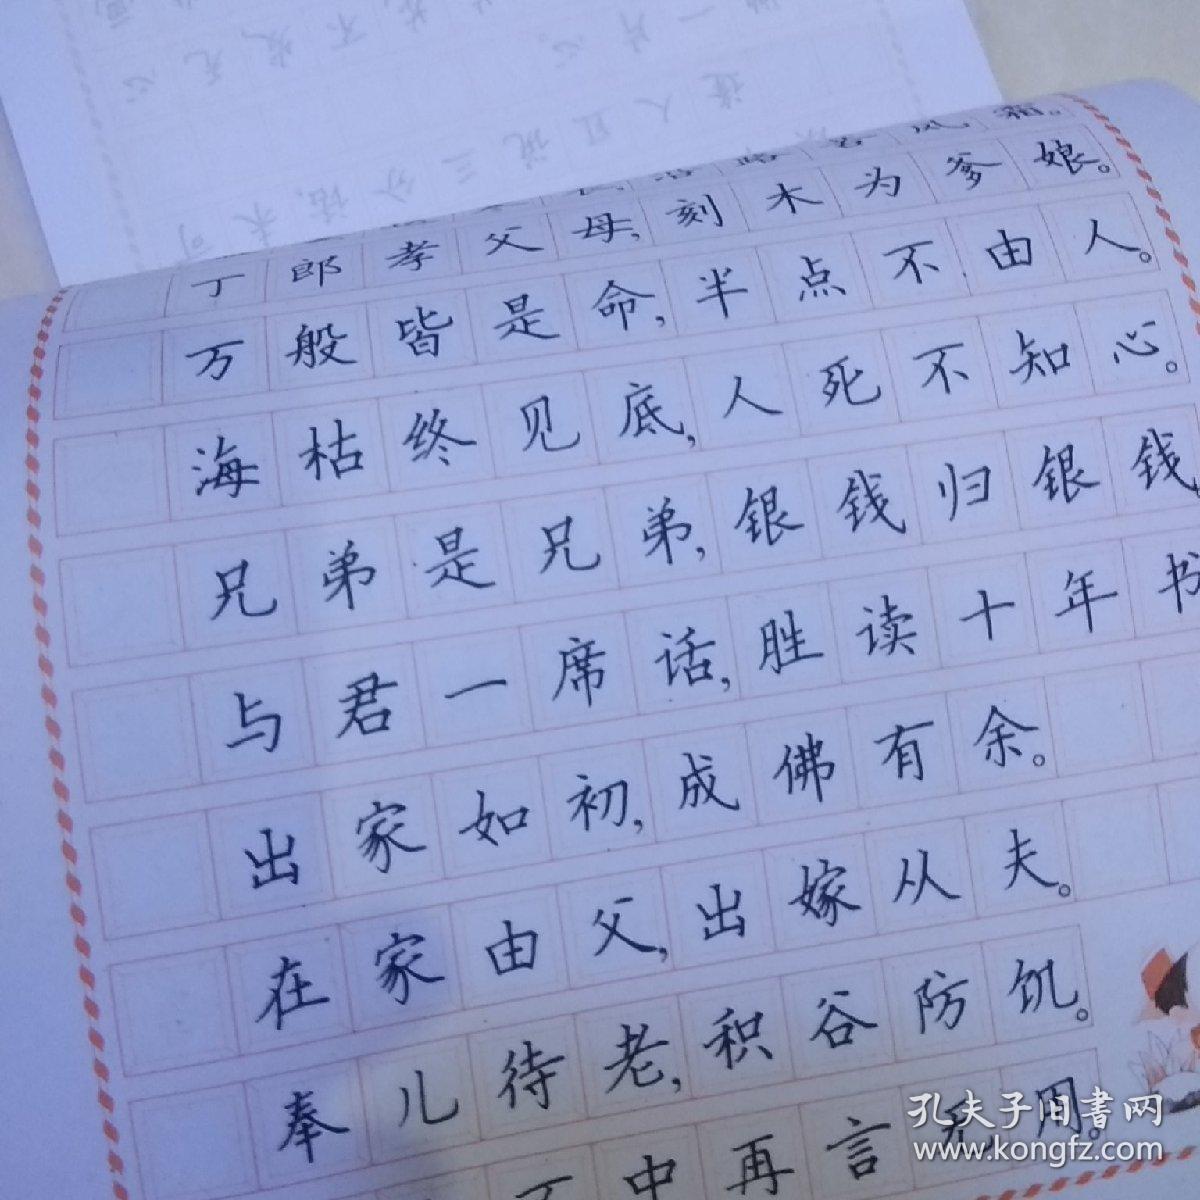 人且说三分话,未可
霜。
丁郎孝父母,刻木为爹娘。
万般皆是命,半点不由人。
海枯终见底,人死不知心。
兄弟是兄弟,银钱归银钱
与君一席话,胜读十年书
出家如初,成佛有余。
在家由父,出嫁从夫。
奉儿待老,积谷防饥。
中再言无用。
孔夫子旧書网
www.kongfz.com